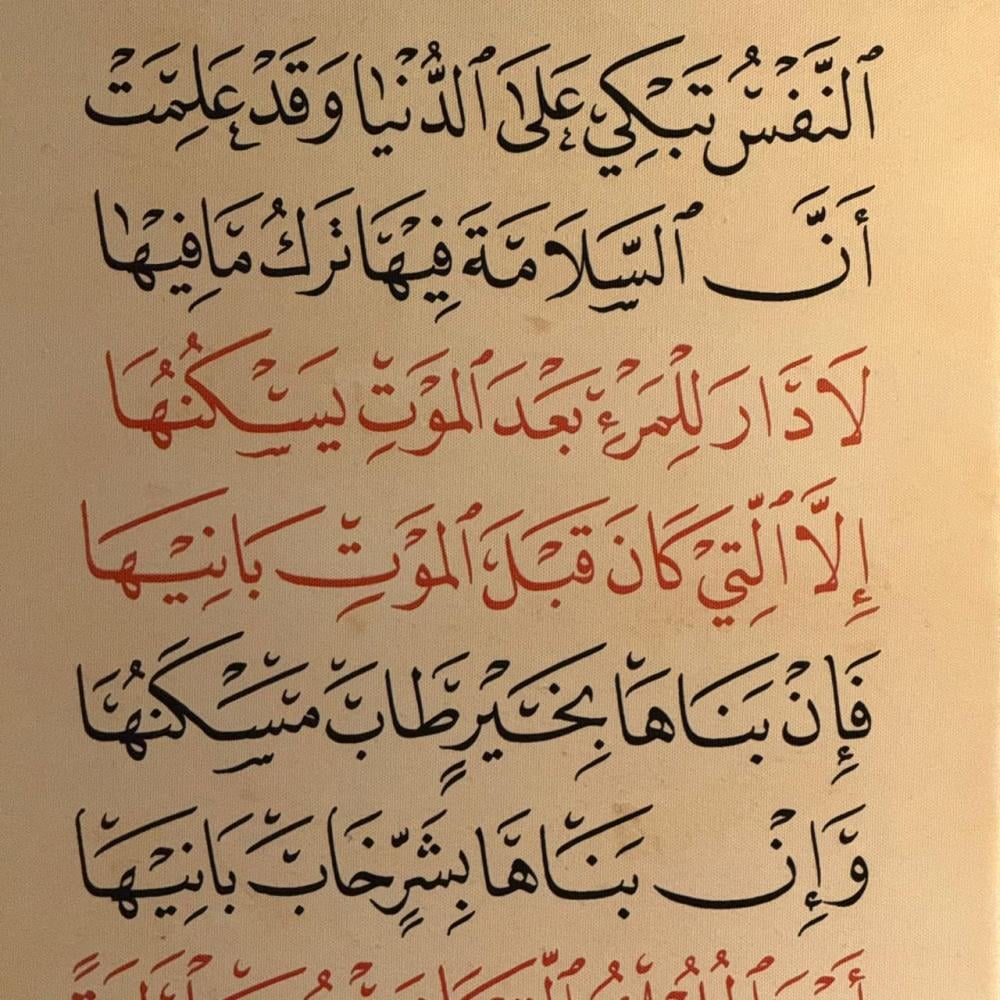 ٱلنَّفْسُ تَبْكِي عَلَىٰ ٱلدُّنْيَا وَقَدْ عَلِمَتْ
أَنَّ ٱلسَّلَامَةَ فِيْهَا تَرْكُ مَا فِيْهَا
لَا دَارَ لِلْمَرْءِ بَعْدَ ٱلْمَوْتِ يَسْكُنُهَا
إِلَّا ٱلَّتِيْ كَانَ قَبْلَ ٱلْمَوْتِ بَانِيْهَا
فَإِنْ بَنَاهَا بِخَيْرٍ طَابَ مَسْكَنُهَا
وَإِنْ بَنَاهَا بِشَرٍّ خَابَ بَانِيْهَا